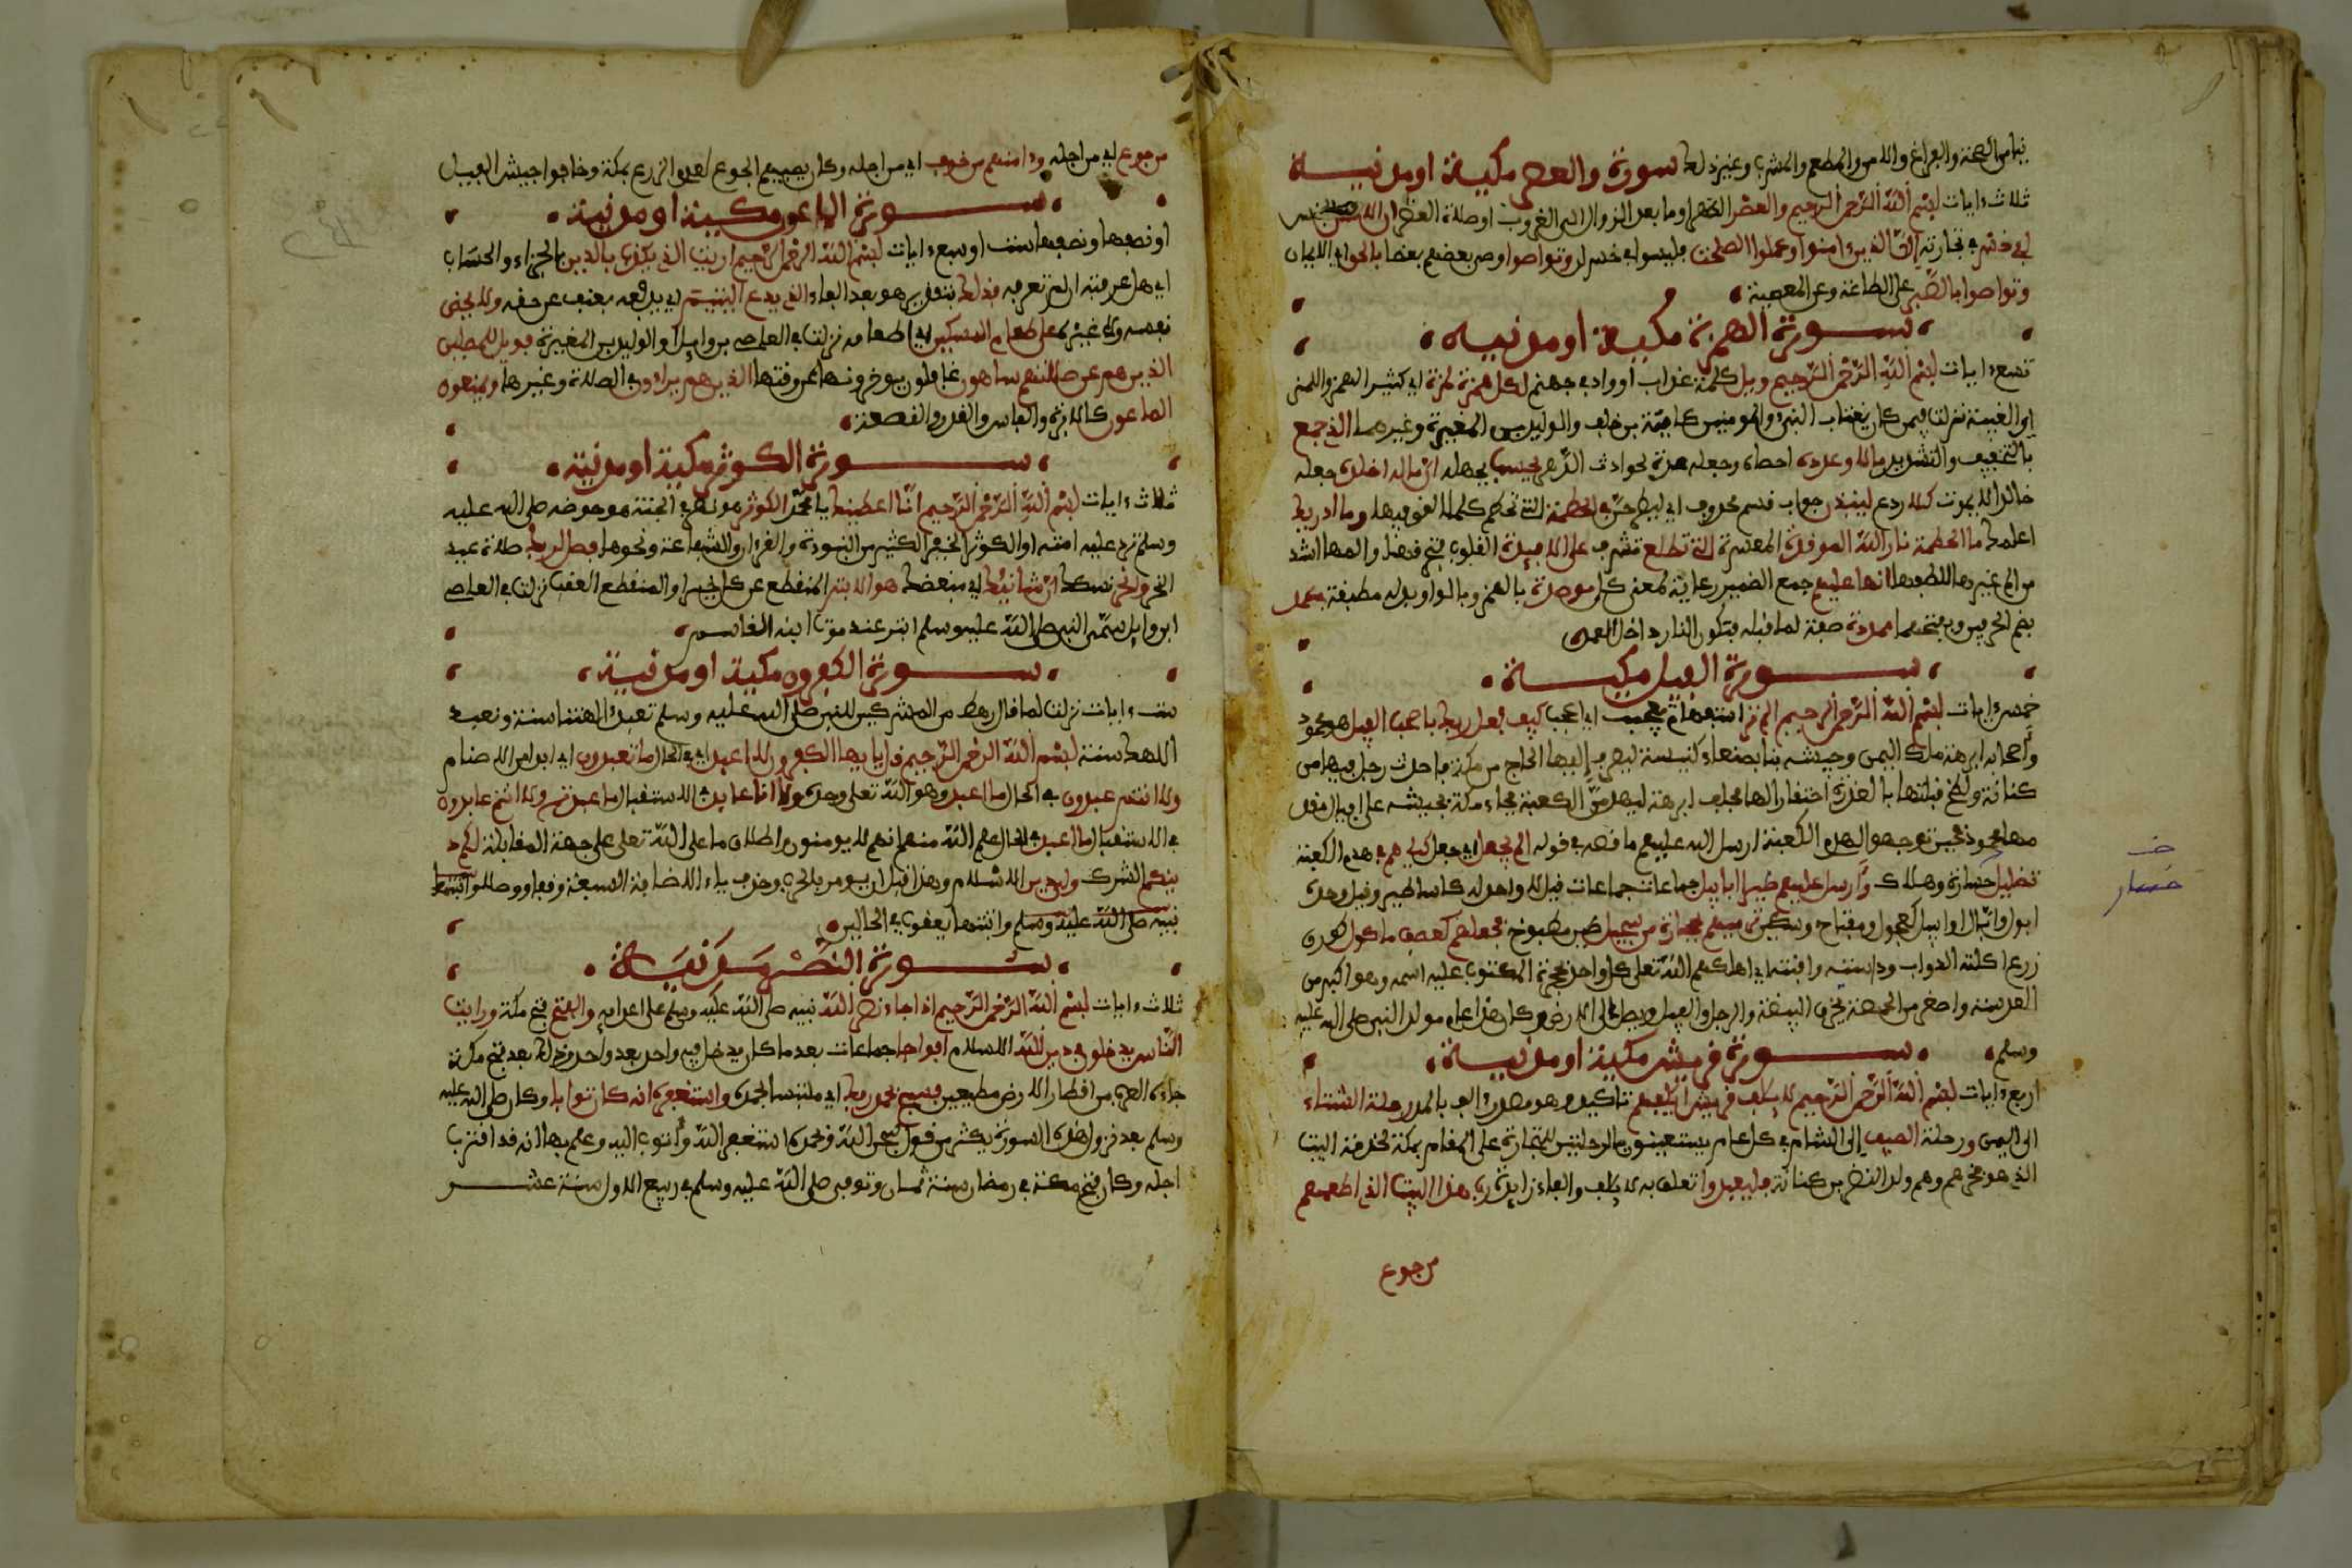 من الصحة والفراغ والامن والمطعم والمشرب وغير ذلك سورة والعصر مكية او مدنية
ثلاث ءايات بسم الله الرحمن الرحيم والعصر الدهر او ما بعد الزوال الى الغروب او صلاة العصر ان الانسان
لفي خسر في تجارته الا الذين ءامنوا وعملوا الصلحت فليسوا في خسران وتواصوا اوصى بعضهم بعضا بالحق اي الايمان
وتواصوا بالصبر على الطاعة وعن المعصية
سورة الهمزة مكية او مدنية
تسع ءايات بسم الله الرحمن الرحيم ويل كلمة عذاب او واد في جهنم لكل همزة لمزة اي كثير الهمز واللمز
اي الغيبة نزلت فيمن كان يغتاب النبي والمومنين كامية بن خلف والوليد بن المغيرة وغيرهما الذي جمع
بالتخفيف والتشديد مالا وعدده احصاه وجعله عدة لحوادث الدهر يحسب لجهله ان ماله اخلده جعله
خالدا لا يموت كلا ردع لينبذن جواب قسم محذوف اي ليطرحن في الحطمة التي تحطم كلما القي فيها وما ادريك
اعلمك ما الحطمة نار الله الموقدة المسعرة التي تطلع تشرف على الافئدة القلوب فتحرقها والمها اشد
من الم غيرها للطفها انها عليهم جمع الضمير رعاية لمعنى كل موصدة بالهمز وبالواو بدله مطبقة في عمد
بضم الحرفين وبفتحهما ممددة صفة لما قبله فتكون النار داخل العمد
سورة الفيل مكية
خمس ءايات بسم الله الرحمن الرحيم الم تر استفهام تعجيب اي اعجب كيف فعل ربك باصحب الفيل هو محمود
واصحابه ابرهة ملك اليمن وجيشه بنا بصنعاء كنيسة ليصرف اليها الحاج من مكة فاحدث رجل فيها من
كنانة ولطخ قبلتها بالعذرة احتقارا لها فحلف ابرهة ليهدمن الكعبة فجاء مكة بجيشه على افيال مقدمها
محمود فحين توجهوا لهدم الكعبة ارسل الله عليهم ما قصه في قوله الم يجعل اي جعل كيدهم في هدم الكعبة
تضليل خسارة وهلاك وأرسل عليهم طيرا ابابيل جماعات جماعات قيل لا واحد له كاساطير وقيل واحده
ابول او ابال او ابيل كعجول ومفتاح وسكين ترميهم بحجارة من سجيل طين مطبوخ فجعلهم كعصف ماكول كورق
زرع اكلته الدواب وداسته وافنته اي اهلكهم الله تعلى كل واحد بحجره المكتوب عليه اسمه وهو اكبر من
العدسة واصغر من الحمصة يخرق البيضة والرجل والفيل ويصل الى الارض وكان هذا عام مولد النبي صلى الله عليه
وسلم سورة قريش مكية او مدنية
اربع ءايات بسم الله الرحمن الرحيم لايلف قريش ايلفهم تاكيد وهو مصدر ءالف بالمد رحلة الشتاء
الى اليمن ورحلة الصيف إلى الشام في كل عام يستعينون بالرحلتين للتجارة على المقام بمكة لخدمة البيت
الذي هو فخرهم وهم ولد النضر بن كنانة فليعبدوا تعلق به لايلف والفاء زايدة رب هذا البيت الذي اطعمهم
من جوع
خسار
من جوع اي من اجله وءامنهم من خوف اي من اجله وكان يصيبهم الجوع لعدم الزرع بمكة وخافوا جيش الفيل
سورة الماعون مكية او مدنية
او نصفها ونصفها ست او سبع ءايات بسم الله الرحمن الرحيم اريت الذي يكذب بالدين بالجزاء والحساب
اي هل عرفته ان لم تعرفه فذلك بتقدير هو بعد الفاء الذي يدع اليتيم اي يدفعه بعنف عن حقه ولا يحض
نفسه ولا غيره على طعام المسكين اي اطعامه نزلت في العاصي بن وايل او الوليد بن المغيرة فويل للمصلين
الذين هم عن صلاتهم ساهون غافلون يوخرونها عن وقتها الذين هم يراءون في الصلاة وغيرها ويمنعون
الماعون كالابرة والفاس والقدر والقصعة
سورة الكوثر مكية او مدنية
ثلاث ءايات بسم الله الرحمن الرحيم انا اعطينك يا محمد الكوثر هو نهر في الجنة هو حوضه صلى الله عليه
وسلم ترد عليه امته او الكوثر الخير الكثير من النبوءة والقرءان والشفاعة ونحوها فصل لربك صلاة عيد
النحر وانحر نسكك ان شانئك اي مبغضك هو الابتر المنقطع عن كل خير او المنقطع العقب نزلت في العاصي
ابن وايل سمى النبي صلى الله عليه وسلم ابتر عند موت ابنه القاسم
سورة الكفرون مكية او مدنية
ست ءايات نزلت لما قال رهط من المشركين للنبي صلى الله عليه وسلم تعبد ءالهتنا سنة ونعبد
الاهك سنة بسم الله الرحمن الرحيم قل يايها الكفرون لا اعبد في الحال ما تعبدون اي من الاصنام
ولا انتم عبدون في الحال ما اعبد وهو الله تعلى وحده ولا انا عابد في الاستقبال ما عبدتم ولا انتم عابدون
في الاستقبال ما اعبد في الحال علم الله منهم انهم لا يومنون واطلاق ما على الله تعلى على جهة المقابلة لكم د
ينكم الشرك ولي دين الاسلام وهذا قبل ان يومر بالحرب وحذف ياء الاضافة السبعة وقفا ووصلا واثبتها
نبيه صلى الله عليه وسلم واثبتها يعقوب في الحالين
سورة النصر مدنية
ثلاث ءايات بسم الله الرحمن الرحيم اذا جاء نصر الله نبيه صلى الله عليه وسلم على اعدايه والفتح فتح مكة ورايت
الناس يدخلون في دين الله الاسلام افواجا جماعات بعد ما كان يدخل فيه واحد بعد واحد وذلك بعد فتح مكة
جاءه العرب من اقطار الارض مطيعين فسبح بحمد ربك اي ملتبسا بحمده واستغفره انه كان توابا وكان صلى الله عليه
وسلم بعد نزول هذه السورة يكثر من قول سبحن الله وبحمده استغفر الله وأتوب اليه وعلم بها انه قد اقترب
اجله وكان فتح مكة في رمضان سنة ثمان وتوفي صلى الله عليه وسلم في ربيع الاول سنة عشر